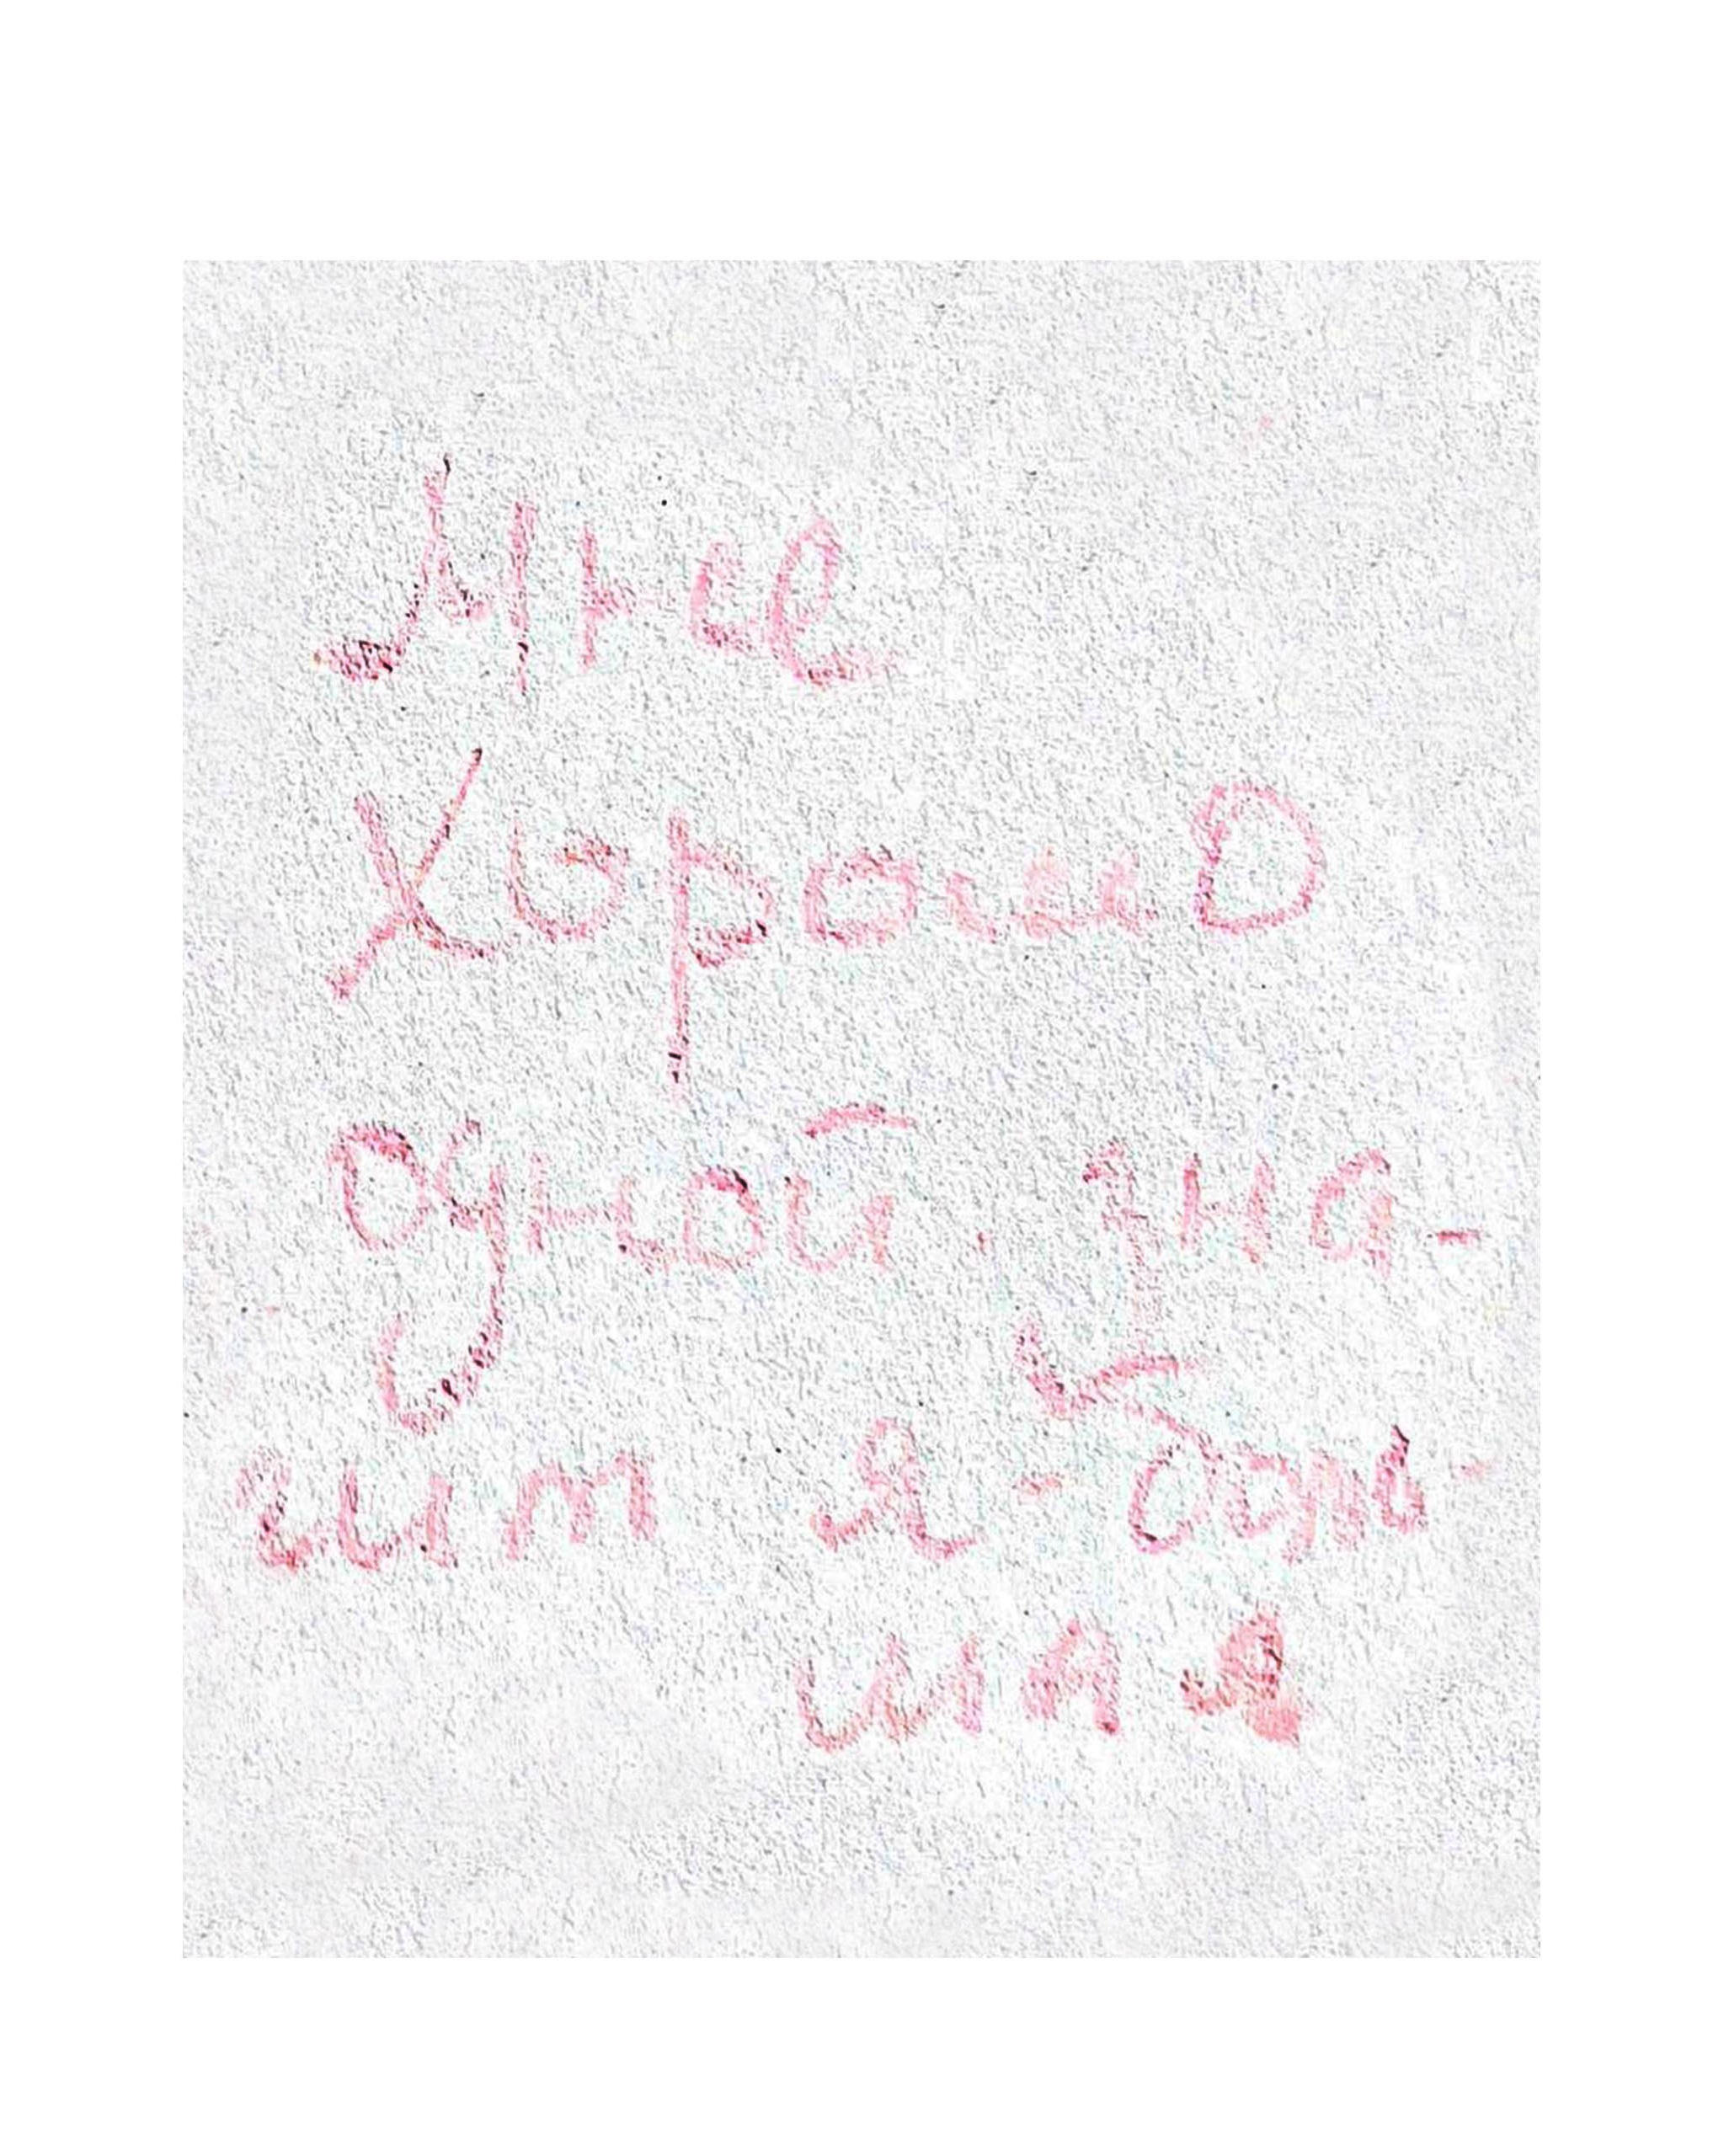 Мне
Хорошо
одной зна-
чит я - боль-
шая